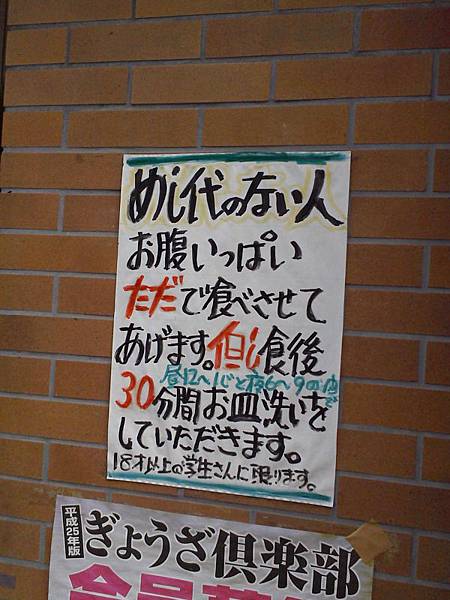 めし代のない人
お腹いっぱい
ただで喰べさせて
あげます。但し食後
昼12〜1時と夜6〜9の間で
30分間お皿洗いを
していただきます。
18才以上の学生さんに限ります。
平成25年版
ぎょうざ倶楽部
会員募